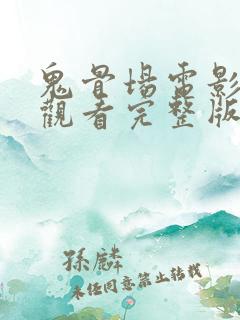 鬼骨場電影
觀看完整版
孫麟
未经同意禁止转载